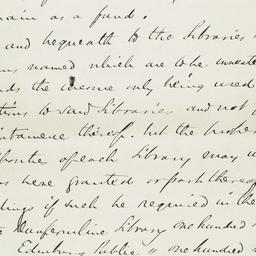 main as a fund.
and bequeath to the Libraries
named which are to be invested
the income only being used
to said Libraries and not
thereof. but the proper
of each Library may
here granted or part thereof
if such be required in the
Dunfermline Library one hundred
Edinburg Public " one hundred